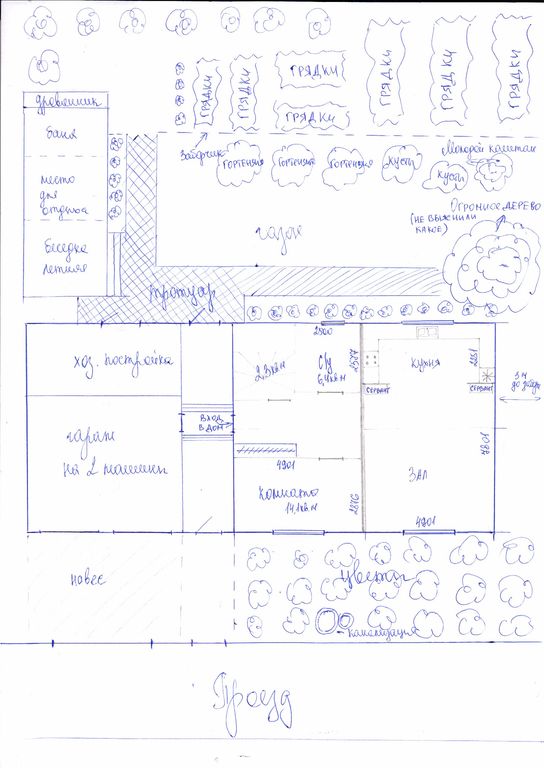 ГРЯДКИ
ГРЯДКИ
ГРЯДКИ
ГРЯДКИ
ГРЯДКИ
ГРЯДКИ
ГРЯДКИ
дровянник
баня
место
для
отдыха
беседка
летняя
Заборчик
ГОРТЕНЗИЯ
ГОРТЕНЗИЯ
ГОРТЕНЗИЯ
КУСТЫ
КУСТЫ
Молодой каштан
ОГРОМНОЕ ДЕРЕВО
(НЕ ВЫЯСНИЛИ
КАКОЕ)
газон
тротуар
хоз. постройка
гараж
на 2 машины
ВХОД
В ДОМ
2,3 кв м
2500
С/у
6,4 кв м
2577
КУХНЯ
2251
СЕРВАНТ
СЕРВАНТ
3 м
до забора
4901
Комната
14,1 кв м
2876
ЗАЛ
7801
4201
навес
Цветы
- Канализация
Проезд